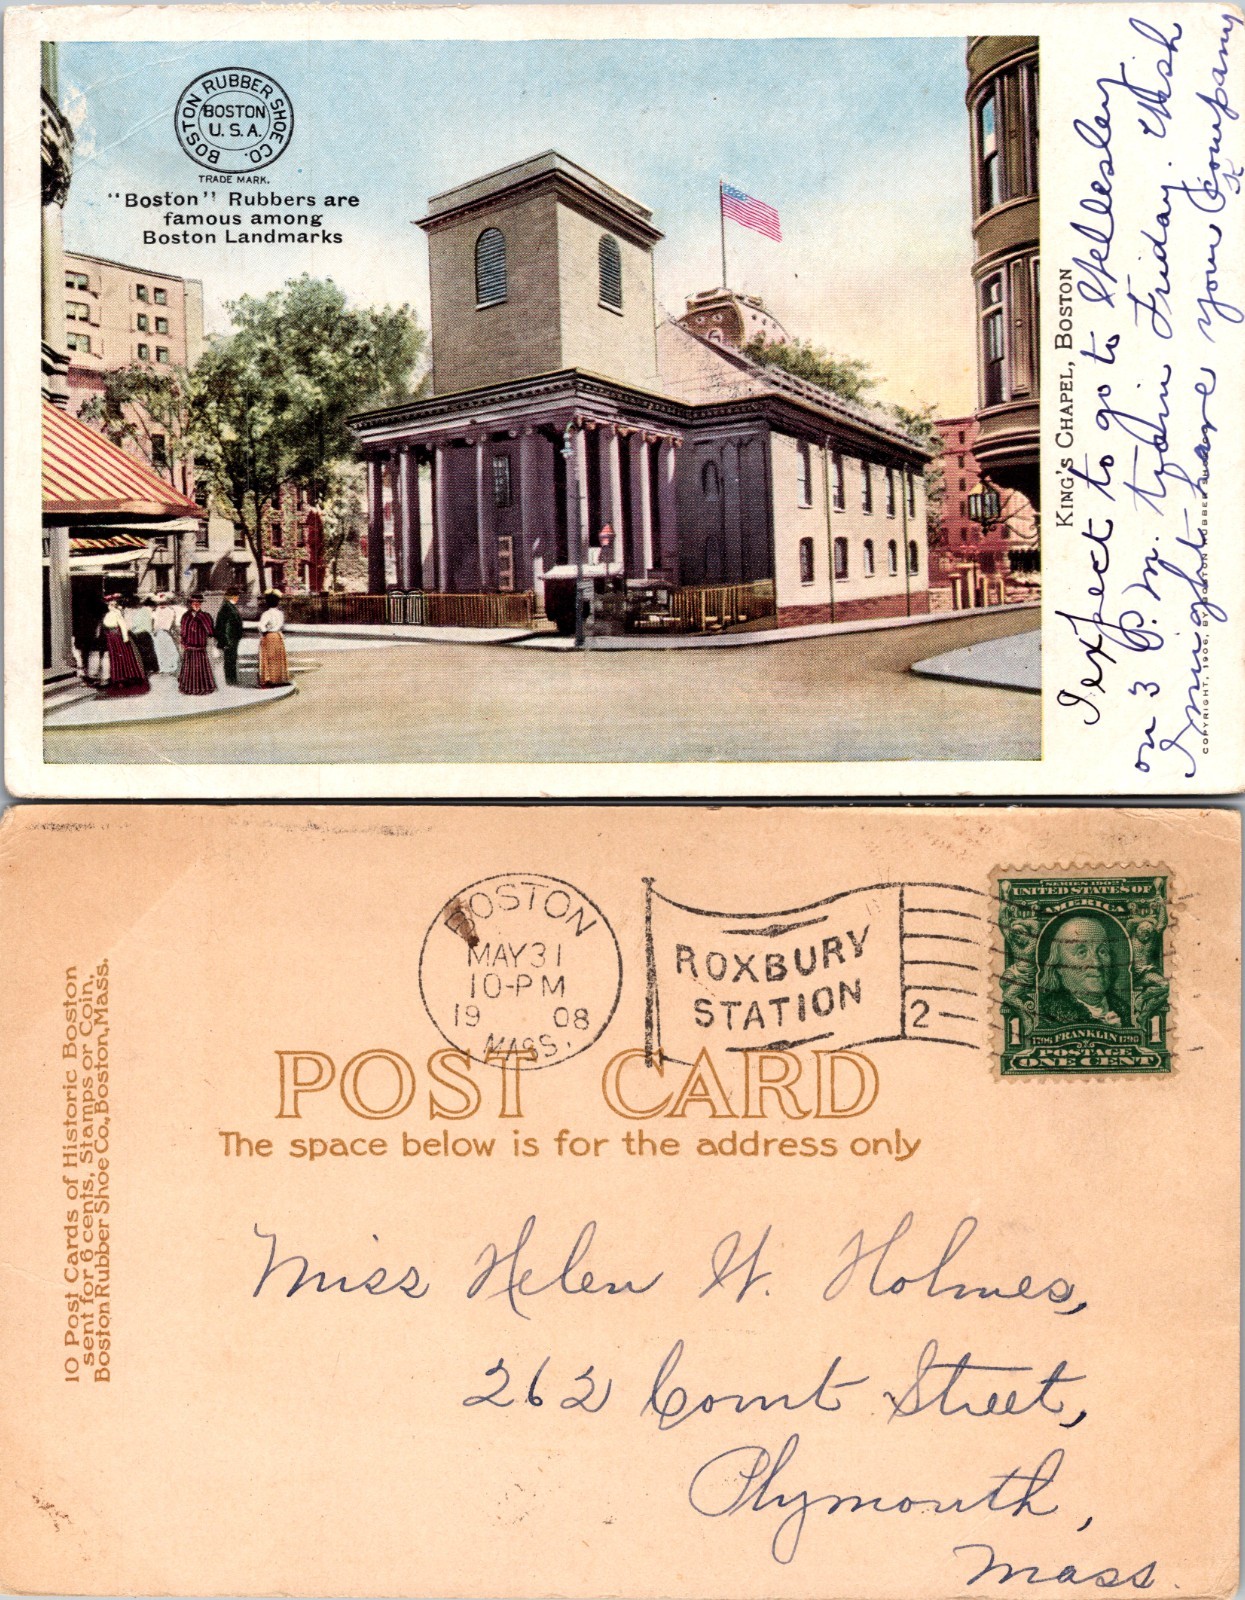 BOSTON RUBBER SHOE CO.
BOSTON
U.S.A.
TRADE MARK.
"Boston" Rubbers are
famous among
Boston Landmarks
KING'S CHAPEL, BOSTON
COPYRIGHT, 1906, BY BOSTON RUBBER SHOE CO.
I expect to go to Wellesley
on 3 P.M. train Friday. Wish
I might have your company
BOSTON
MAY 31
10-PM
19 08
MASS.
ROXBURY
STATION
2
SERIES 1902
UNITED STATES OF
AMERICA
1 FRANKLIN 1
1706 1790
POSTAGE
ONE CENT
POST CARD
The space below is for the address only
10 Post Cards of Historic Boston
sent for 6 cents, Stamps or Coin.
Boston Rubber Shoe Co., Boston, Mass.
Miss Helen W. Holmes,
262 Court Street,
Plymouth,
Mass.